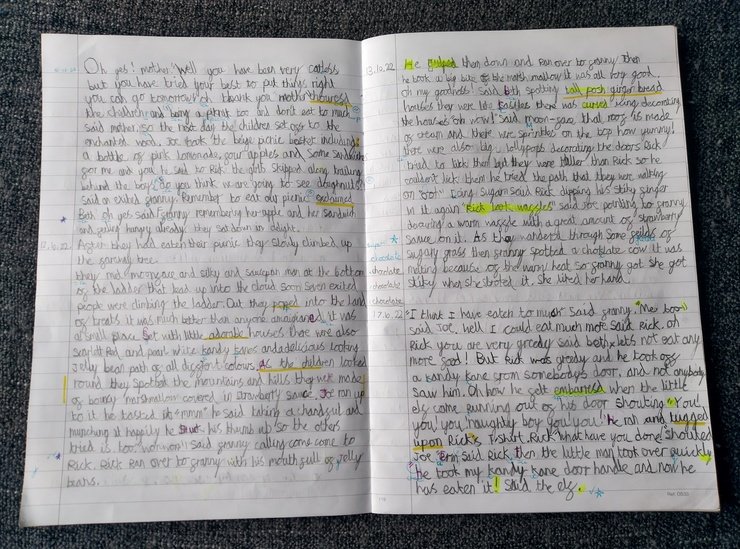 Oh yes! mother. Well you have been very carless
but you have tried your best to put things right
you can go tomorrow. oh thank you mother
the children and bring a picnic too and don't eat to much
said mother, so the next day the children set off to the
enchanted wood, Joe took the beige picnic basket including
a bottle of pink lemonade, four apples and some sandwiches
for me and you he said to Rick. the girls skipped along trailing
behind the boys do you think we are going to see doughnuts
said an exited granny. Remember to eat our picnic exclaimed
Beth oh yes said granny remembering her apple and her sandwich
and feeling hungry already they sat down in delight.
12.10.22 After they had eaten their picnic they slowly climbed up
the faraway tree.
they met moonface and silky and saucepan man at the bottom
of the ladder that lead up into the cloud soon seven exited
people were climbing the ladder. Out they popped into the land
of treats it was much better than anyone imagined it was
a small place set with little adorable houses. there were also
scarlet Red and pearl white kandy kanes and a delicious looking
jelly bean path of all different colours. As the children looked
round they spotted the mountains and hills they were made
of bouncy marshmallow covered in strawberry sauce, Joe ran up
to it he tasted it "mmm" he said taking a handfull and
munching it happily he stuck his thumb up so the others
tried it too. wow wow!! said granny calling come come to
Rick. Rick Ran over to granny with his mouth full of jelly
beans.
13.10.22 He gulped then down and Ran over to granny then
he took a big bite of the marshmallow it was all very good.
oh my goodness! said Beth spotting tall posh ginger bread
houses they were like castles there was curved icing decorating
the houses oh wow! said moon-face, that roof is made
of cream and there were sprinkles on the top how yummy!
there were also big lollypops decorating the doors Rick
tried to lick them but they were taller than Rick so he
couldn't lick them he tried the path that they were walking
on "oo!" icing sugar said Rick dipping his sticky finger
in it again "Rick look waffles" said Joe pointing to granny
devouring a warm waffle with a great amount of strawberry
sauce on it. As they wandered through some fields of
sugar *
sugary grass then granny spotted a chocolate cow it was
chocolate
melting because of the warm heat so granny got She got
chocolate
sticky when she stroked it. She licked her hand.
chocolate
chocolate
17.10.22 "I think I have eaten to much" said granny. "Me too"
said Joe, well I could eat much more said Rick. oh
Rick you are very greedy said Beth lets not eat any
more food! But Rick was greedy and he took off
a kandy kane from somebody's door, and not anybody
saw him. Oh how he felt embarresed when the little
elf came running out of his door shouting "You!
you, you naughty boy you you! he ran and tugged
upon Rick's t'shirt. Rick what have you done! Shouted
Joe Erm said Rick, then the little man took over quickly
he took my kandy kane door handle and now he
has eaten it! Said the elf.